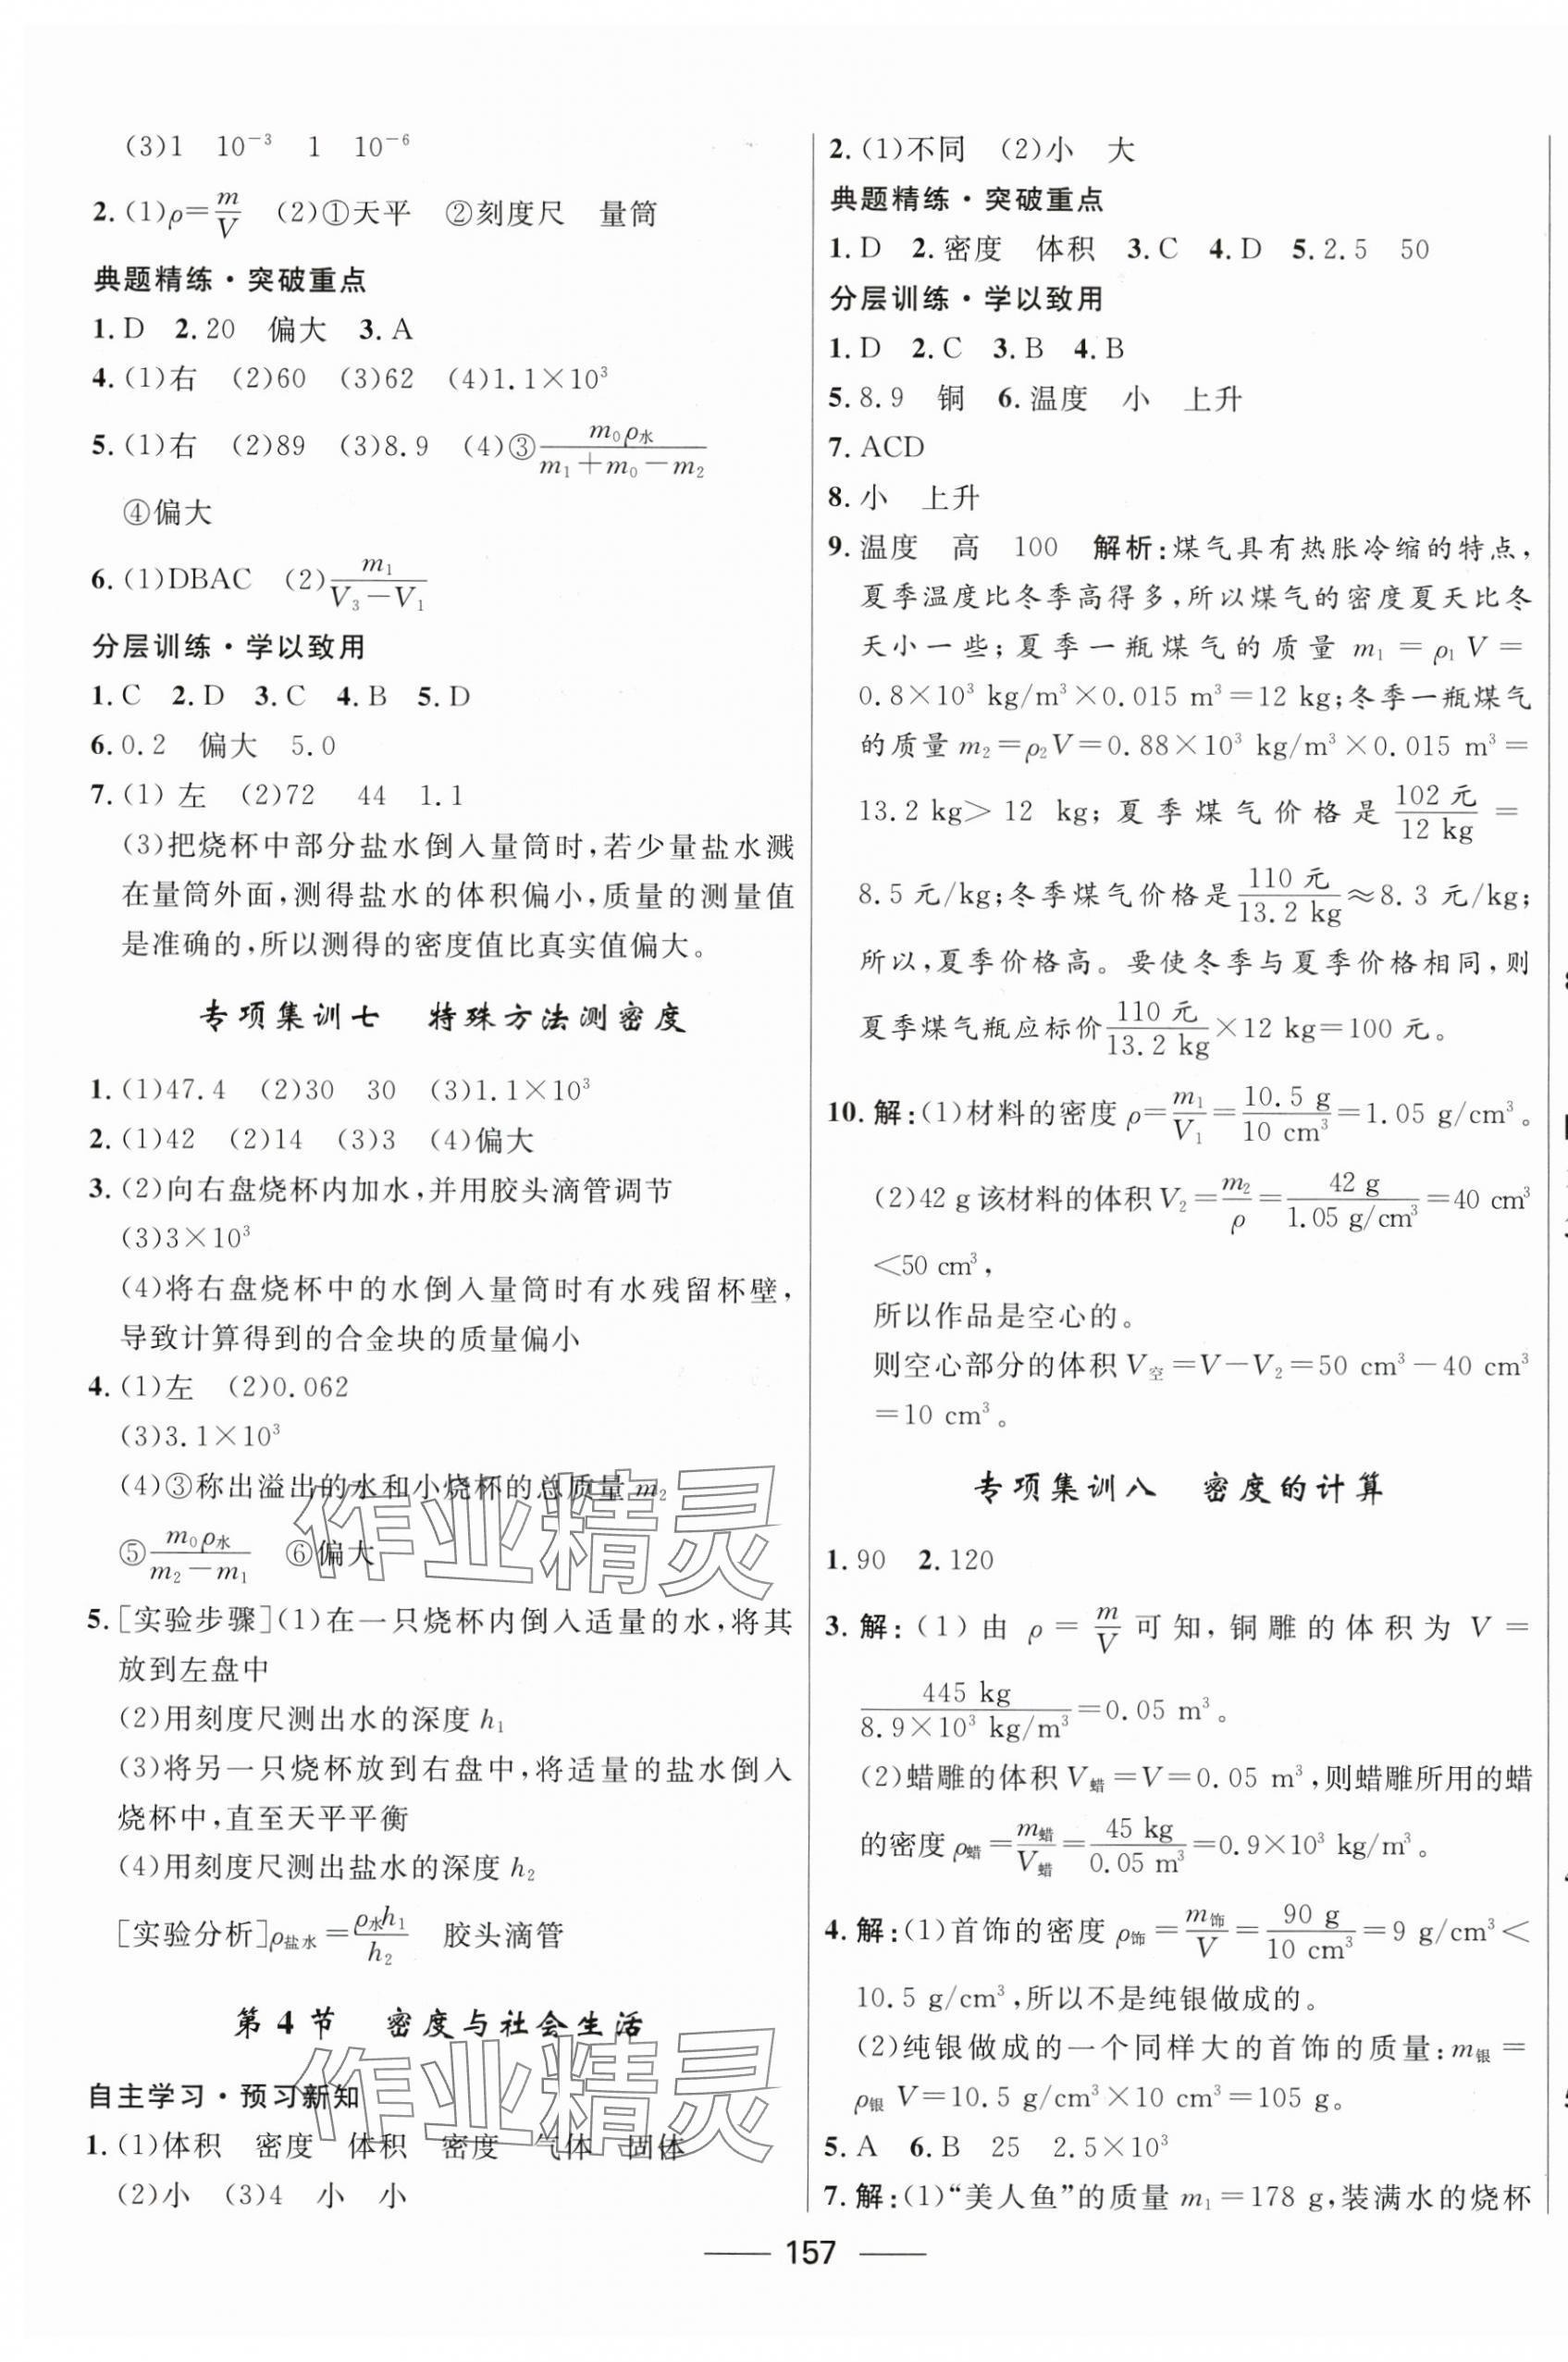 (3)1　10⁻³　1　10⁻⁶
2. (1)ρ=m/V　(2)①天平　②刻度尺　量筒
典题精练·突破重点
1. D　2. 20　偏大　3. A
4. (1)右　(2)60　(3)62　(4)1.1×10³
5. (1)右　(2)89　(3)8.9　(4)③m₀ρ水/(m₁+m₀−m₂)
④偏大
6. (1)DBAC　(2)m₁/(V₃−V₁)
分层训练·学以致用
1. C　2. D　3. C　4. B　5. D
6. 0.2　偏大　5.0
7. (1) 左　(2)72　44　1.1
(3)把烧杯中部分盐水倒入量筒时,若少量盐水溅
在量筒外面,测得盐水的体积偏小,质量的测量值
是准确的,所以测得的密度值比真实值偏大。
专项集训七　特殊方法测密度
1. (1)47.4　(2)30　30　(3)1.1×10³
2. (1)42　(2)14　(3)3　(4)偏大
3. (2)向右盘烧杯内加水,并用胶头滴管调节
(3)3×10³
(4)将右盘烧杯中的水倒入量筒时有水残留杯壁,
导致计算得到的合金块的质量偏小
4. (1)左　(2)0.062
(3)3.1×10³
(4)③称出溢出的水和小烧杯的总质量 m₂
⑤m₀ρ水/(m₂−m₁)　⑥偏大
5. [实验步骤](1)在一只烧杯内倒入适量的水,将其
放到左盘中
(2)用刻度尺测出水的深度 h₁
(3)将另一只烧杯放到右盘中,将适量的盐水倒入
烧杯中,直至天平平衡
(4)用刻度尺测出盐水的深度 h₂
[实验分析]ρ盐水=ρ水h₁/h₂　胶头滴管
第4节　密度与社会生活
自主学习·预习新知
1. (1)体积　密度　体积　密度　气体　固体
(2)小　(3)4　小　小
2. (1)不同　(2)小　大
典题精练·突破重点
1. D　2. 密度　体积　3. C　4. D　5. 2.5　50
分层训练·学以致用
1. D　2. C　3. B　4. B
5. 8.9　铜　6. 温度　小　上升
7. ACD
8. 小　上升
9. 温度　高　100　解析:煤气具有热胀冷缩的特点,
夏季温度比冬季高得多,所以煤气的密度夏天比冬
天小一些;夏季一瓶煤气的质量 m₁=ρ₁V=
0.8×10³ kg/m³×0.015 m³=12 kg;冬季一瓶煤气
的质量 m₂=ρ₂V=0.88×10³ kg/m³×0.015 m³=
13.2 kg>12 kg;夏季煤气价格是102 元/12 kg=
8.5 元/kg;冬季煤气价格是110 元/13.2 kg≈8.3 元/kg;
所以,夏季价格高。要使冬季与夏季价格相同,则
夏季煤气瓶应标价110 元/13.2 kg×12 kg=100 元。
10. 解:(1)材料的密度 ρ=m₁/V₁=10.5 g/10 cm³=1.05 g/cm³。
(2)42 g该材料的体积 V₂=m₂/ρ=42 g/1.05 g/cm³=40 cm³
<50 cm³,
所以作品是空心的。
则空心部分的体积 V空=V−V₂=50 cm³−40 cm³
=10 cm³。
专项集训八　密度的计算
1. 90　2. 120
3. 解:(1)由 ρ=m/V可知,铜雕的体积为 V=
445 kg/8.9×10³ kg/m³=0.05 m³。
(2)蜡雕的体积 V蜡=V=0.05 m³,则蜡雕所用的蜡
的密度 ρ蜡=m蜡/V蜡=45 kg/0.05 m³=0.9×10³ kg/m³。
4. 解:(1)首饰的密度 ρ饰=m饰/V=90 g/10 cm³=9 g/cm³<
10.5 g/cm³,所以不是纯银做成的。
(2)纯银做成的一个同样大的首饰的质量:m银=
ρ银 V=10.5 g/cm³×10 cm³=105 g。
5. A　6. B　25　2.5×10³
7. 解:(1)“美人鱼”的质量 m₁=178 g,装满水的烧杯
157
作业精灵
作业精灵